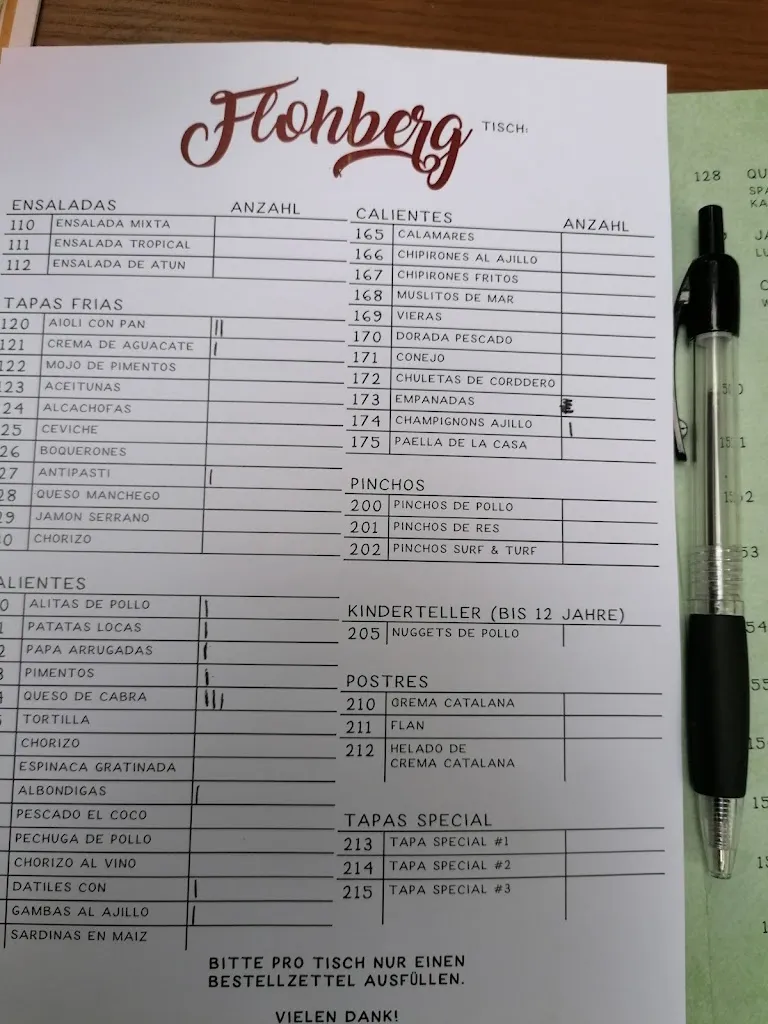 Flohberg
TISCH:
ENSALADAS ANZAHL
110 ENSALADA MIXTA
111 ENSALADA TROPICAL
112 ENSALADA DE ATUN
TAPAS FRIAS
120 AIOLI CON PAN II
121 CREMA DE AGUACATE I
122 MOJO DE PIMENTOS
123 ACEITUNAS
24 ALCACHOFAS
25 CEVICHE
26 BOQUERONES
27 ANTIPASTI I
28 QUESO MANCHEGO
29 JAMON SERRANO
0 CHORIZO
ALIENTES
0 ALITAS DE POLLO I
1 PATATAS LOCAS I
2 PAPA ARRUGADAS I
3 PIMENTOS I
4 QUESO DE CABRA III
TORTILLA
CHORIZO
ESPINACA GRATINADA
ALBONDIGAS I
PESCADO EL COCO
PECHUGA DE POLLO
CHORIZO AL VINO
DATILES CON I
GAMBAS AL AJILLO I
SARDINAS EN MAIZ
CALIENTES ANZAHL
165 CALAMARES
166 CHIPIRONES AL AJILLO
167 CHIPIRONES FRITOS
168 MUSLITOS DE MAR
169 VIERAS
170 DORADA PESCADO
171 CONEJO
172 CHULETAS DE CORDDERO
173 EMPANADAS
174 CHAMPIGNONS AJILLO I
175 PAELLA DE LA CASA
PINCHOS
200 PINCHOS DE POLLO
201 PINCHOS DE RES
202 PINCHOS SURF & TURF
KINDERTELLER (BIS 12 JAHRE)
205 NUGGETS DE POLLO
POSTRES
210 CREMA CATALANA
211 FLAN
212 HELADO DE
CREMA CATALANA
TAPAS SPECIAL
213 TAPA SPECIAL #1
214 TAPA SPECIAL #2
215 TAPA SPECIAL #3
BITTE PRO TISCH NUR EINEN
BESTELLZETTEL AUSFÜLLEN.
VIELEN DANK!
128 QU
SPA
KA
JA
LU